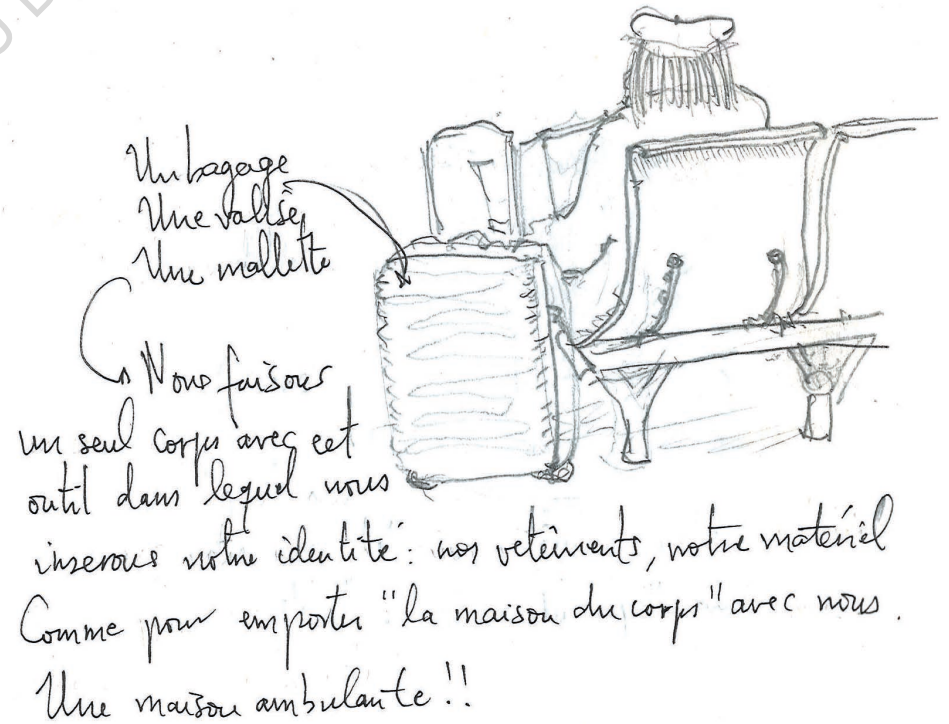 Un bagage
Une valise
Une mallette
Nous faisons
un seul corps avec cet
outil dans lequel nous
inserons notre identité: nos vetêments, notre matériel
Comme pour emporter "la maison du corps" avec nous.
Une maison ambulante!!